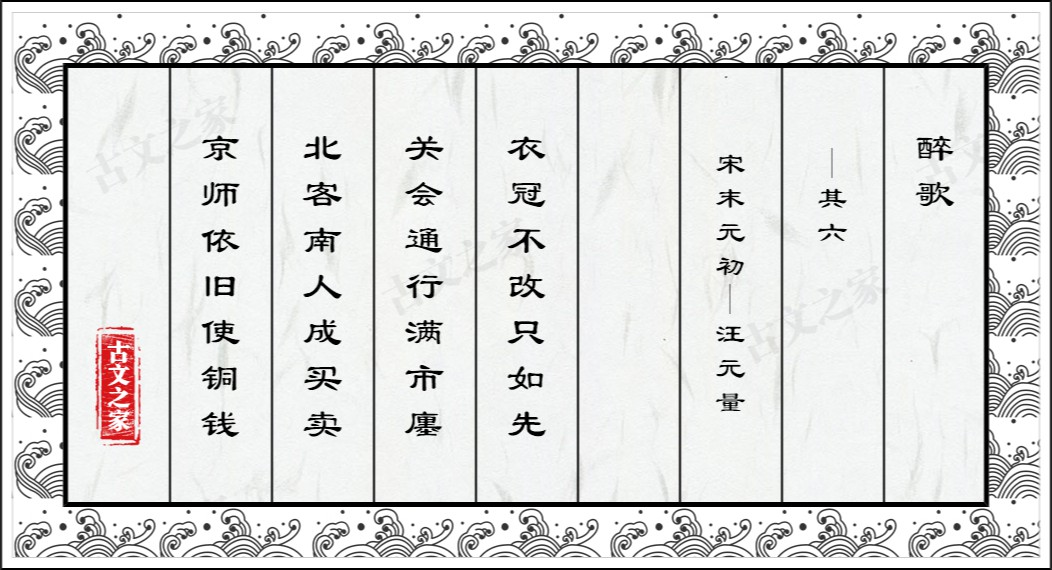 醉歌
—其六
宋末元初—汪元量
衣冠不改只如先
关会通行满市廛
北客南人成买卖
京师依旧使铜钱
古文之家
古文之家
古文之家
古文之家